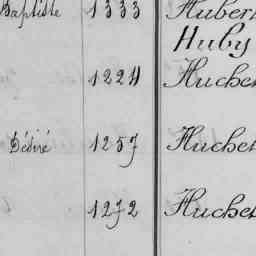 Baptiste 1333 Huber
Huby
1224 Huche
Désiré 1257 Huche
1272 Huche